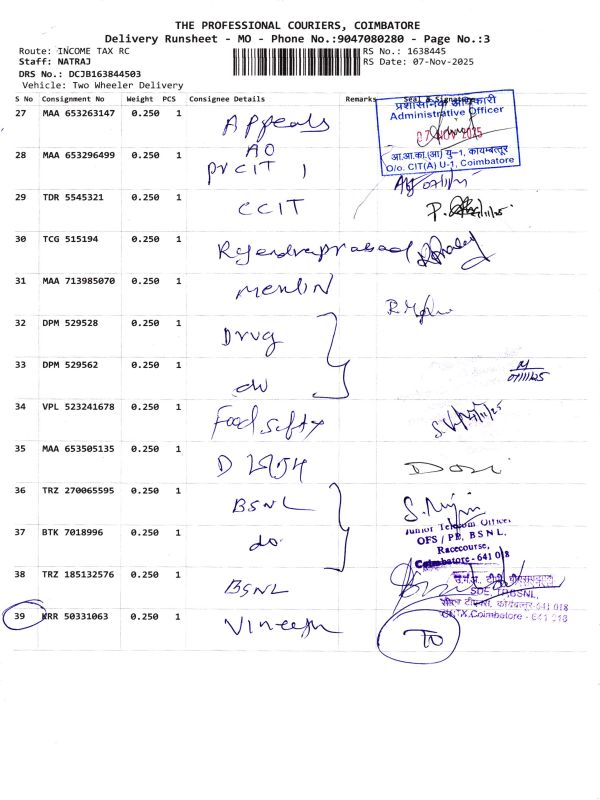 THE PROFESSIONAL COURIERS, COIMBATORE
Delivery Runsheet - MO - Phone No.:9047080280 - Page No.:3
Route: INCOME TAX RC
RS No.: 1638445
Staff: NATRAJ
RS Date: 07-Nov-2025
DRS No.: DCJB163844503
Vehicle: Two Wheeler Delivery
S No Consignment No Weight PCS Consignee Details Remarks Seal & Signature
27 MAA 653263147 0.250 1 Appeals
प्रशासनिक अधिकारी
Administrative Officer
07 NOV 2025
आ.आ.का.(आ) यु-1, कोयम्बत्तूर
O/o. CIT(A) U-1, Coimbatore
28 MAA 653296499 0.250 1 AO
PrCIT 1
29 TDR 5545321 0.250 1 CCIT
30 TCG 515194 0.250 1 Rajendraprasad
31 MAA 713985070 0.250 1 Merlin
32 DPM 529528 0.250 1 Drug
33 DPM 529562 0.250 1 do
07/11/25
34 VPL 523241678 0.250 1 Food Safty
35 MAA 653505135 0.250 1 D
36 TRZ 270065595 0.250 1 BSNL
Junior Telecom Officer
OFS / PB, BSNL,
Racecourse,
Coimbatore - 641 018
37 BTK 7018996 0.250 1 do
38 TRZ 185132576 0.250 1 BSNL
SDE, TP,BSNL,
CGTX,Coimbatore - 641 018
39 KRR 50331063 0.250 1 Vineeth
TO